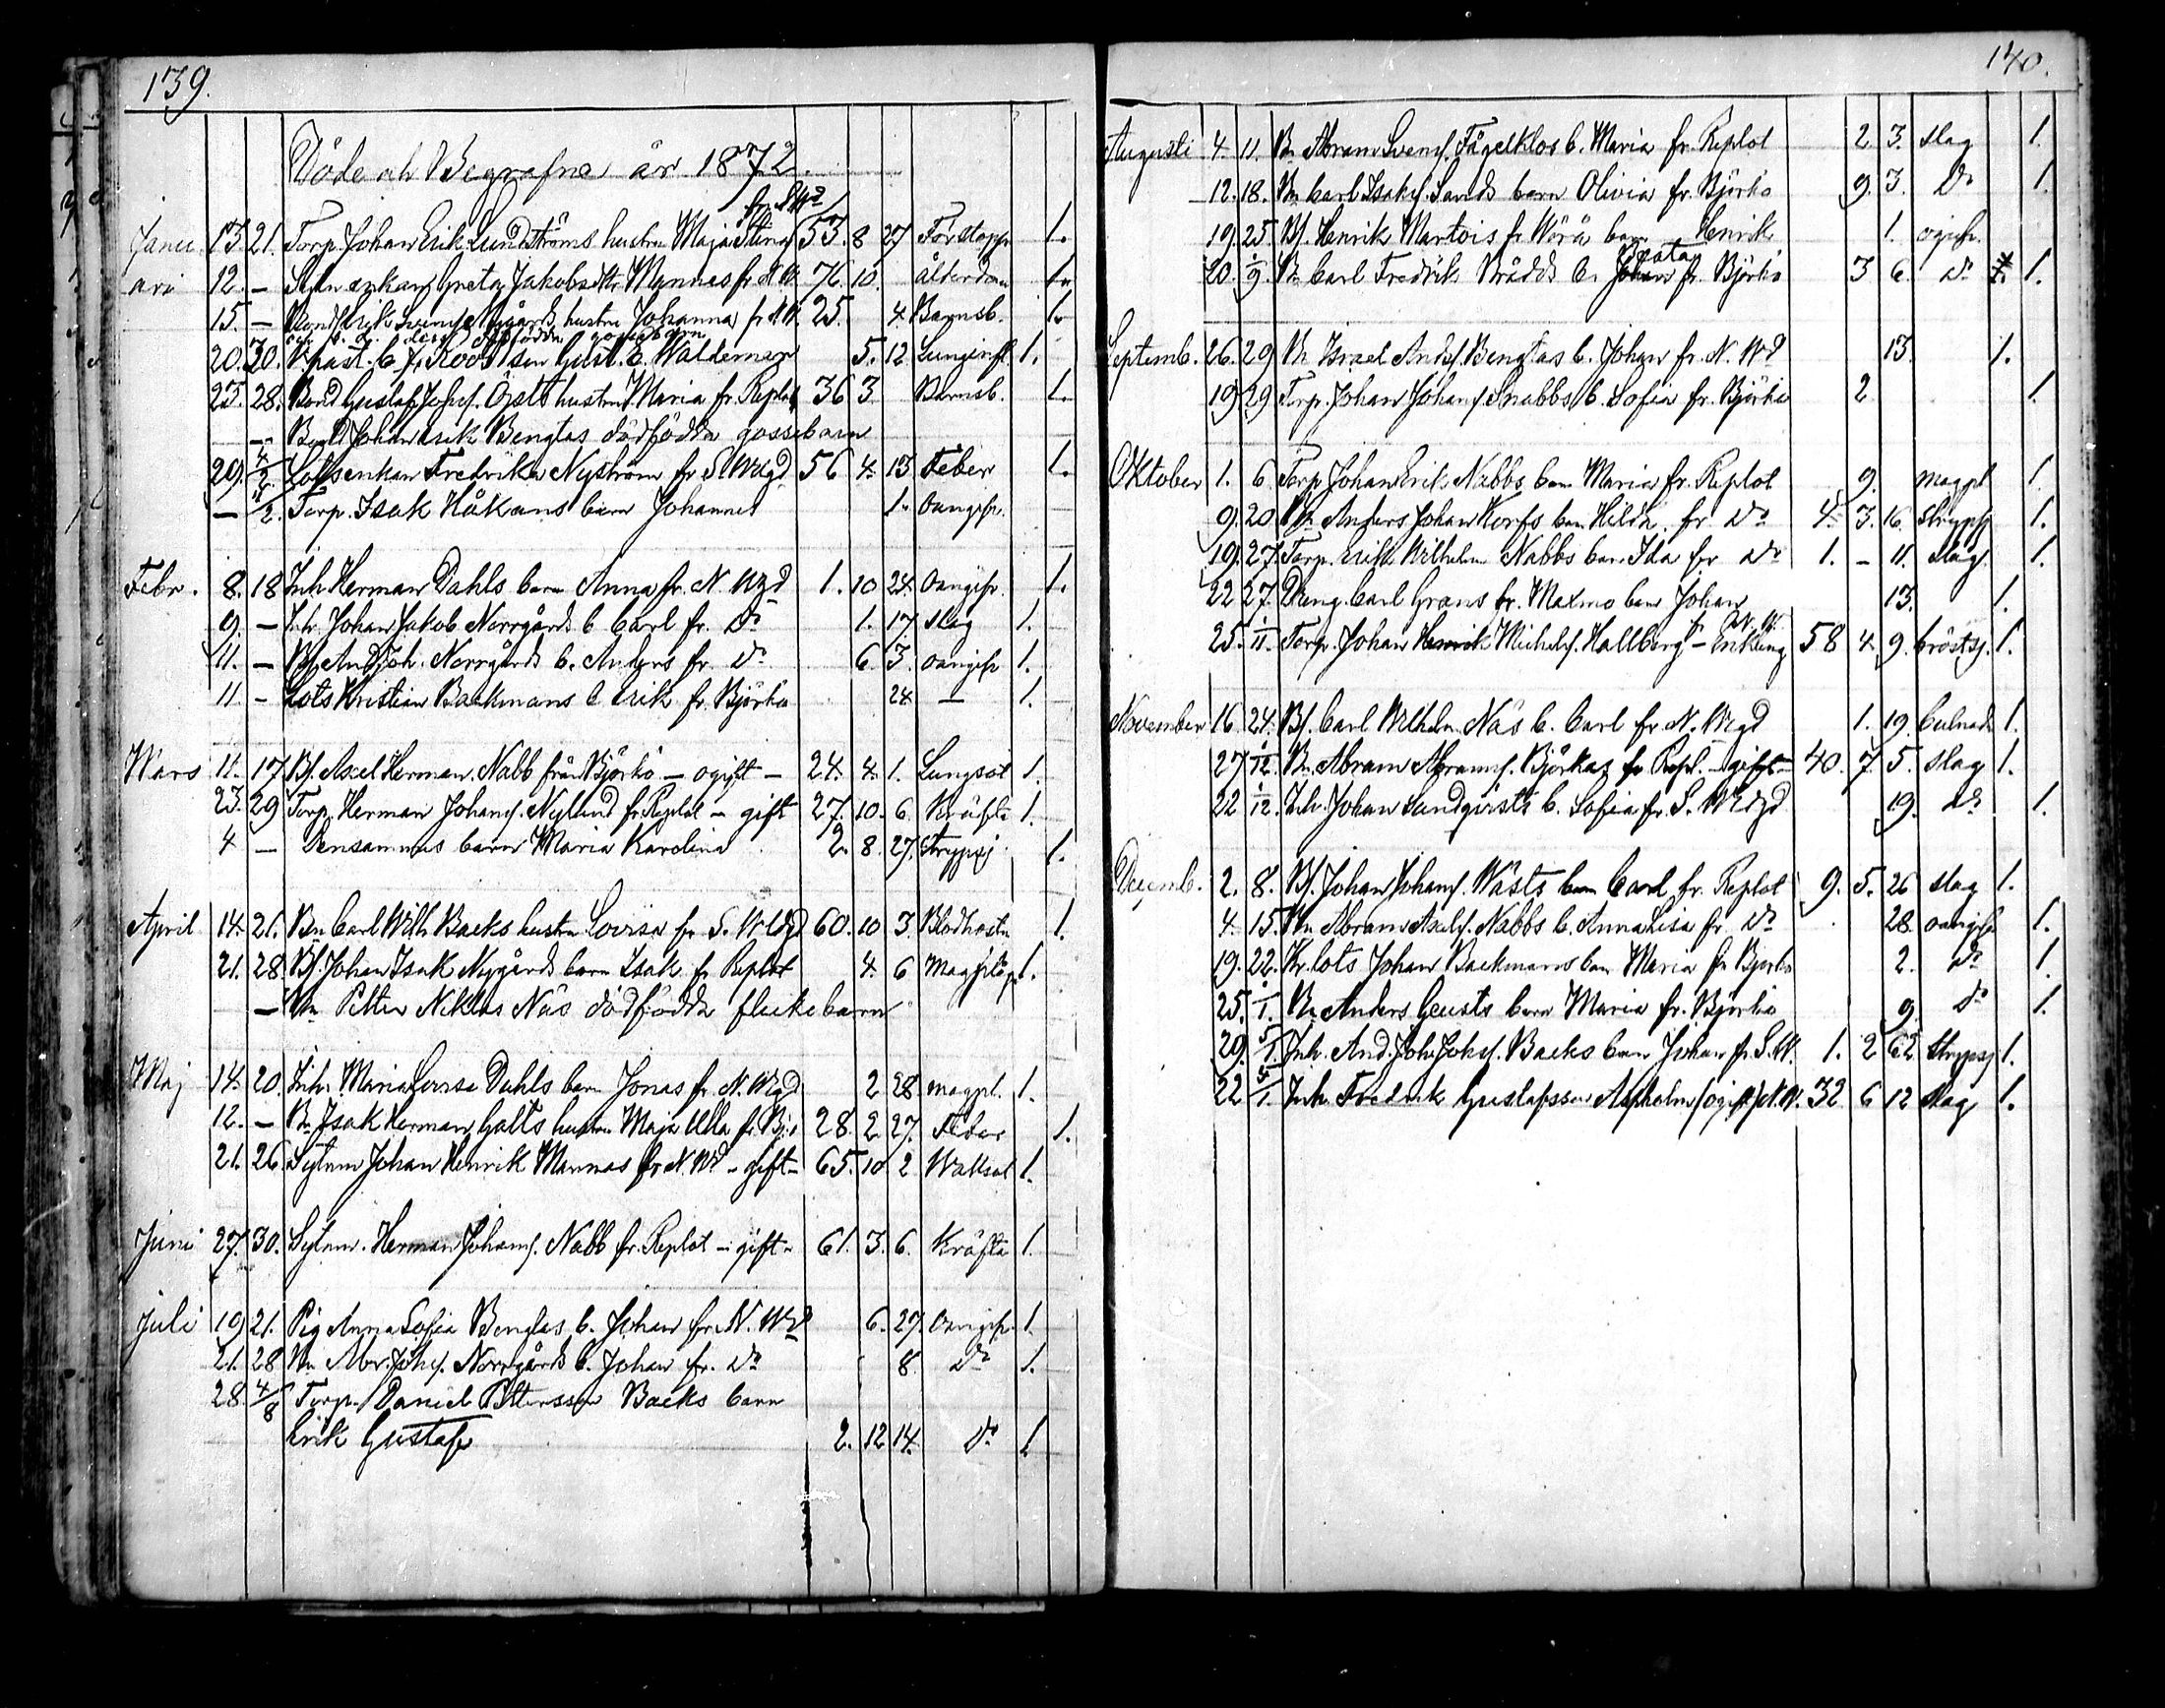 139.
Döde och Begrafne år 1872.
Janu 13. 21. Torp. Johan Erik Lundströms hustru Maja Stina 53. 8 27 Förstopp 1.
ari 12. — Greta Jakobsdtr Mannas fr N. W. 76. 10. ålderdom 1.
15. — Bond Erik hustru Johanna fr N. W. 25. 4. Barnsb. 1.
dess dödfödda gossebarn
20. 30. V. past. C. F. Roos son Gust. E. Waldemar 5. 12 Lunginfl. 1.
23. 28. Bond Gustaf Johss. hustru Maria fr. Replot 36 3 Barnsb. 1.
— Bond Johan Erik Bengtas dödfödda gossebarn
29. 4/2 Lotsenkan Fredrika Nyström fr S. Wlgd 56 4. 13 Feber 1.
— /2. Torp. Isak Håkans barn Johannes 1. Oangifn.
Febr. 8. 18 Inh. Herman Dahls barn Anna fr. N. Wgd 1. 10 24. Oangifn. 1.
9. — Inh. Johan Jakob Norrgårds b Carl fr. Do 1. 17. slag 1.
11. — Bs. And. Joh. Norrgårds b. Anders fr. Do 6. 3. oangifn 1.
11. — Lots Kristian Backmans b Erik fr. Björkö 24. — 1.
Mars 11. 17 Bs. Axel Herman Nabb från Björkö — ogift — 24. 4. 1. Lungsot 1.
23. 29 Torp. Herman Johans. Nylund fr. Replot — gift 27. 10. 6. Kräfta 1.
4 — Densammes barn Maria Karolina 2. 8. 27. Strypsj 1.
April 14. 21. Bn Carl Wilh Backs hustru Lovisa fr S. Wlgd 60. 10 3. Blodhosta 1.
21. 28. Bs. Johan Isak Nygårds barn Isak fr Replot 4. 6 Magplåga 1.
— Bn Petter Niklas Näs dödfödda flickebarn
Maj 14. 20. Inh. Maria Lovisa Dahls barn Jonas fr. N. Wgd 2 28. magpl. 1.
12. — Bn Isak Herman Galts hustru Maja Ulla fr. Bj:ö 28. 2. 27. Feber 1.
21. 26. Sytnm Johan Henrik Mannas fr N. Wd — gift — 65. 10 2 Wattsot 1.
Juni 27. 30. Sytnm. Herman Johans. Nabb fr. Replot — gift — 61. 3. 6. Kräfta 1.
Juli 19 21. Pig Anna Sofia Bengtas b. Johan fr. N. Wgd 6. 27. Oangifn. 1.
21. 28 Bn Abr. Johs. Norrgårds b. Johan fr. Do 8. Do 1.
28. 4/8 Torp. Daniel Pettersson Backs barn
Erik Gustaf 2. 12 14. Do 1.
140.
Augusti 4. 11. Bn Abram Svens. Fågelklos b. Maria fr. Replot 2 3. slag 1.
12. 18. Bn Carl Isaks. Sands barn Olivia fr. Björkö 9. 3. Do 1.
19. 25 Bs. Henrik Martois fr Wörå barn Henrik 1. ogifn.
20. /9. Bn Carl Fredrik b. Beata fr. Björkö 3 6. Do 1.
Septemb. 26. 29 Bn Israel Ands. Bengtas b. Johan fr. N. Wd 13. 1.
19 29 Torp. Johan Johans. Snabbs b. Sofia fr. Björkö 2 1.
Oktober 1. 6. Torp Johan Erik Nabbs barn Maria fr. Replot 9. magpl 1.
9. 20 Bn Anders Johan Korfs barn Hilda fr Do 4. 3. 16. Strypsj 1.
19. 27. Torp. Erik Wilhelm Nabbs barn Ida fr Do 1. — 11. slag. 1.
22 27. Dräng. Carl Grans fr. Maxmo barn Johan 13. 1.
25. /11. Torp. Johan Henrik Michels. Hallberg — Enkling fr. N. W. 58 4. 9. bröstsj. 1.
November 16 24. Bs. Carl Wilhelm Näs b. Carl fr N. Wgd 1. 19. 1.
27 1/12. Bn. Abram Abrams. Björkas fr Repl. — gift — 40. 7. 5. slag 1.
22 1/12. Inh. Johan Sundqvists b. Sofia fr. S. Wgd 19. Do 1.
Decemb. 2. 8. Bs. Johan Johans. Wästs barn Carl fr. Replot 9. 5. 26 slag 1.
4. 15. Bn Abram Axels. Nabbs b. Anna Lisa fr. Do 28. oangifn 1.
19. 22. Kr. lots Johan Backmans barn Maria fr Björkö 2. Do 1.
25. /1. Bn Anders Geusts barn Maria fr. Björkö 9. Do 1.
29. 5/1. Inh. And. Joh. Johss. Backs barn Johan fr. S. W. 1. 2 Strypsj 1.
22 5/1. Inh. Fredrik Gustafsson Aspholm (ogift) N. W. 32 6 12 slag 1.